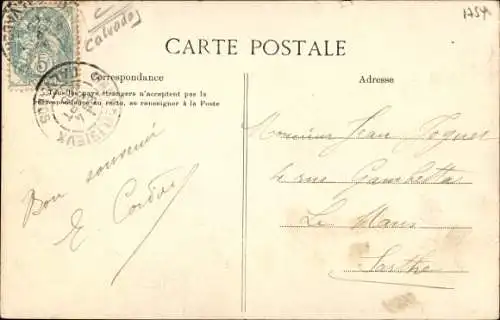 C
Calvados
1754
CARTE POSTALE
Correspondance
Tous les pays étrangers n'acceptent pas la
correspondance au recto, se renseigner à la Poste
Adresse
Bon souvenir
E.
Monsieur Jean
rue Gambetta
Le Mans
Sarthe
5
CALVADOS